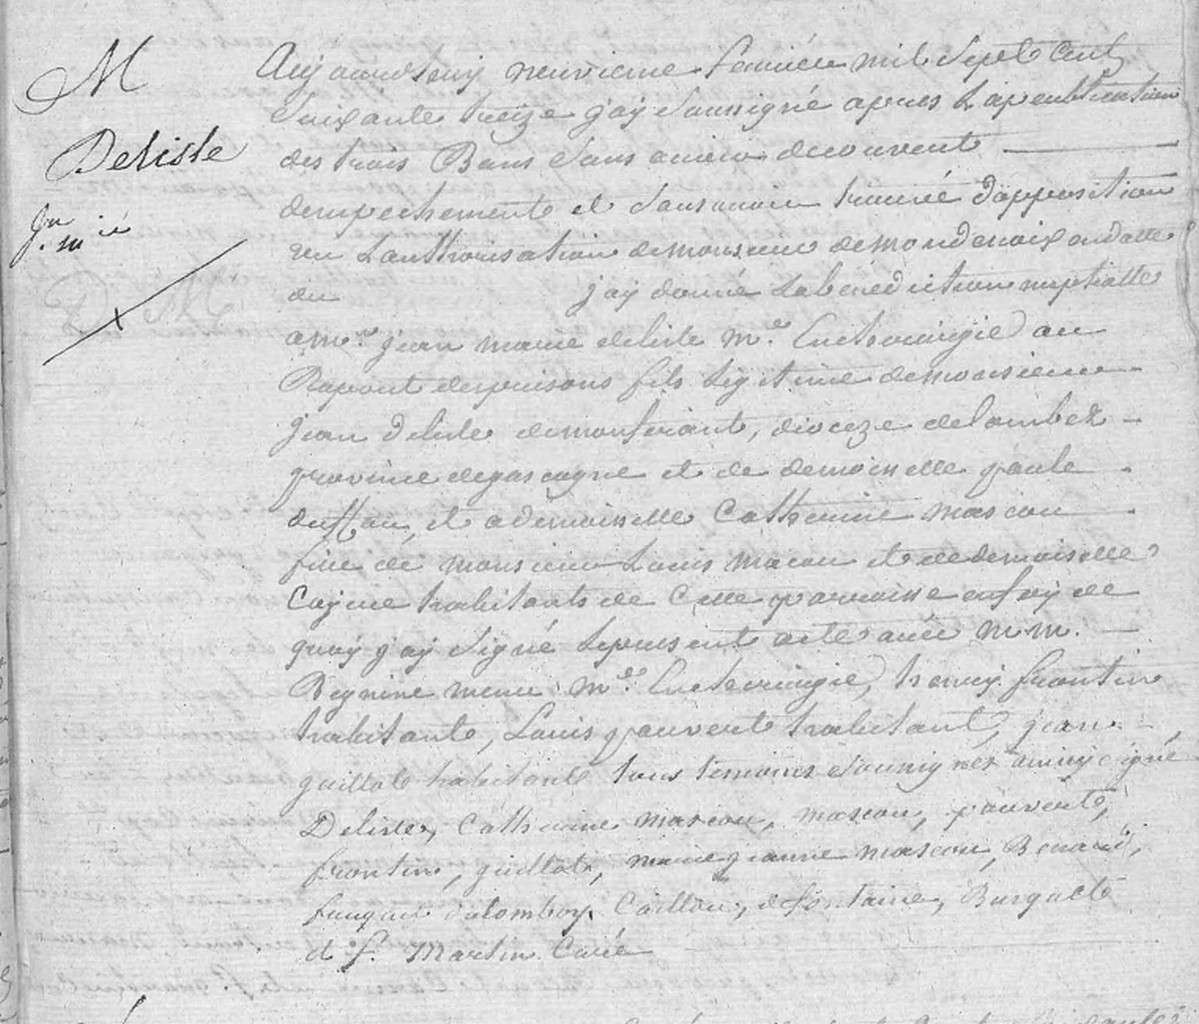 M
Delisle
Aujourd'huy neuvieme fevrier mil Sept Cent
Soixante treize j'ay Soussigné apres La publication
des trois Bans Sans avoir decouvert
dempechements et Sans avoir trouvé d'apposition
vu L'authorisation de monsieur de mondenoix en datte
du jay donné La bénédiction nuptialle
a mr. jean marie delisle me. en chirurgie au
fils Legitime de monsieur
jean delisle de monferant, diocèze de Lombez
province de gascogne et de demoiselle paule
duffau, et a demoiselle Catherine mascou
fille de monsieur Louis macou et de demoiselle
habitants de Cette parroisse en foy de
quoy j'ay Signé Le present acte avec m.m.
me. en chirurgie, henry frontin
habitant, Louis pauvert habitant, jean
guillot habitant tous temoins Soussignés Signé
Delisle, Catherine mascou, mascou, pauvert,
frontin, guillot, marie jeanne mascou, Benard,
Caillou, defontaine, Burgaste
et f. Martin Curé